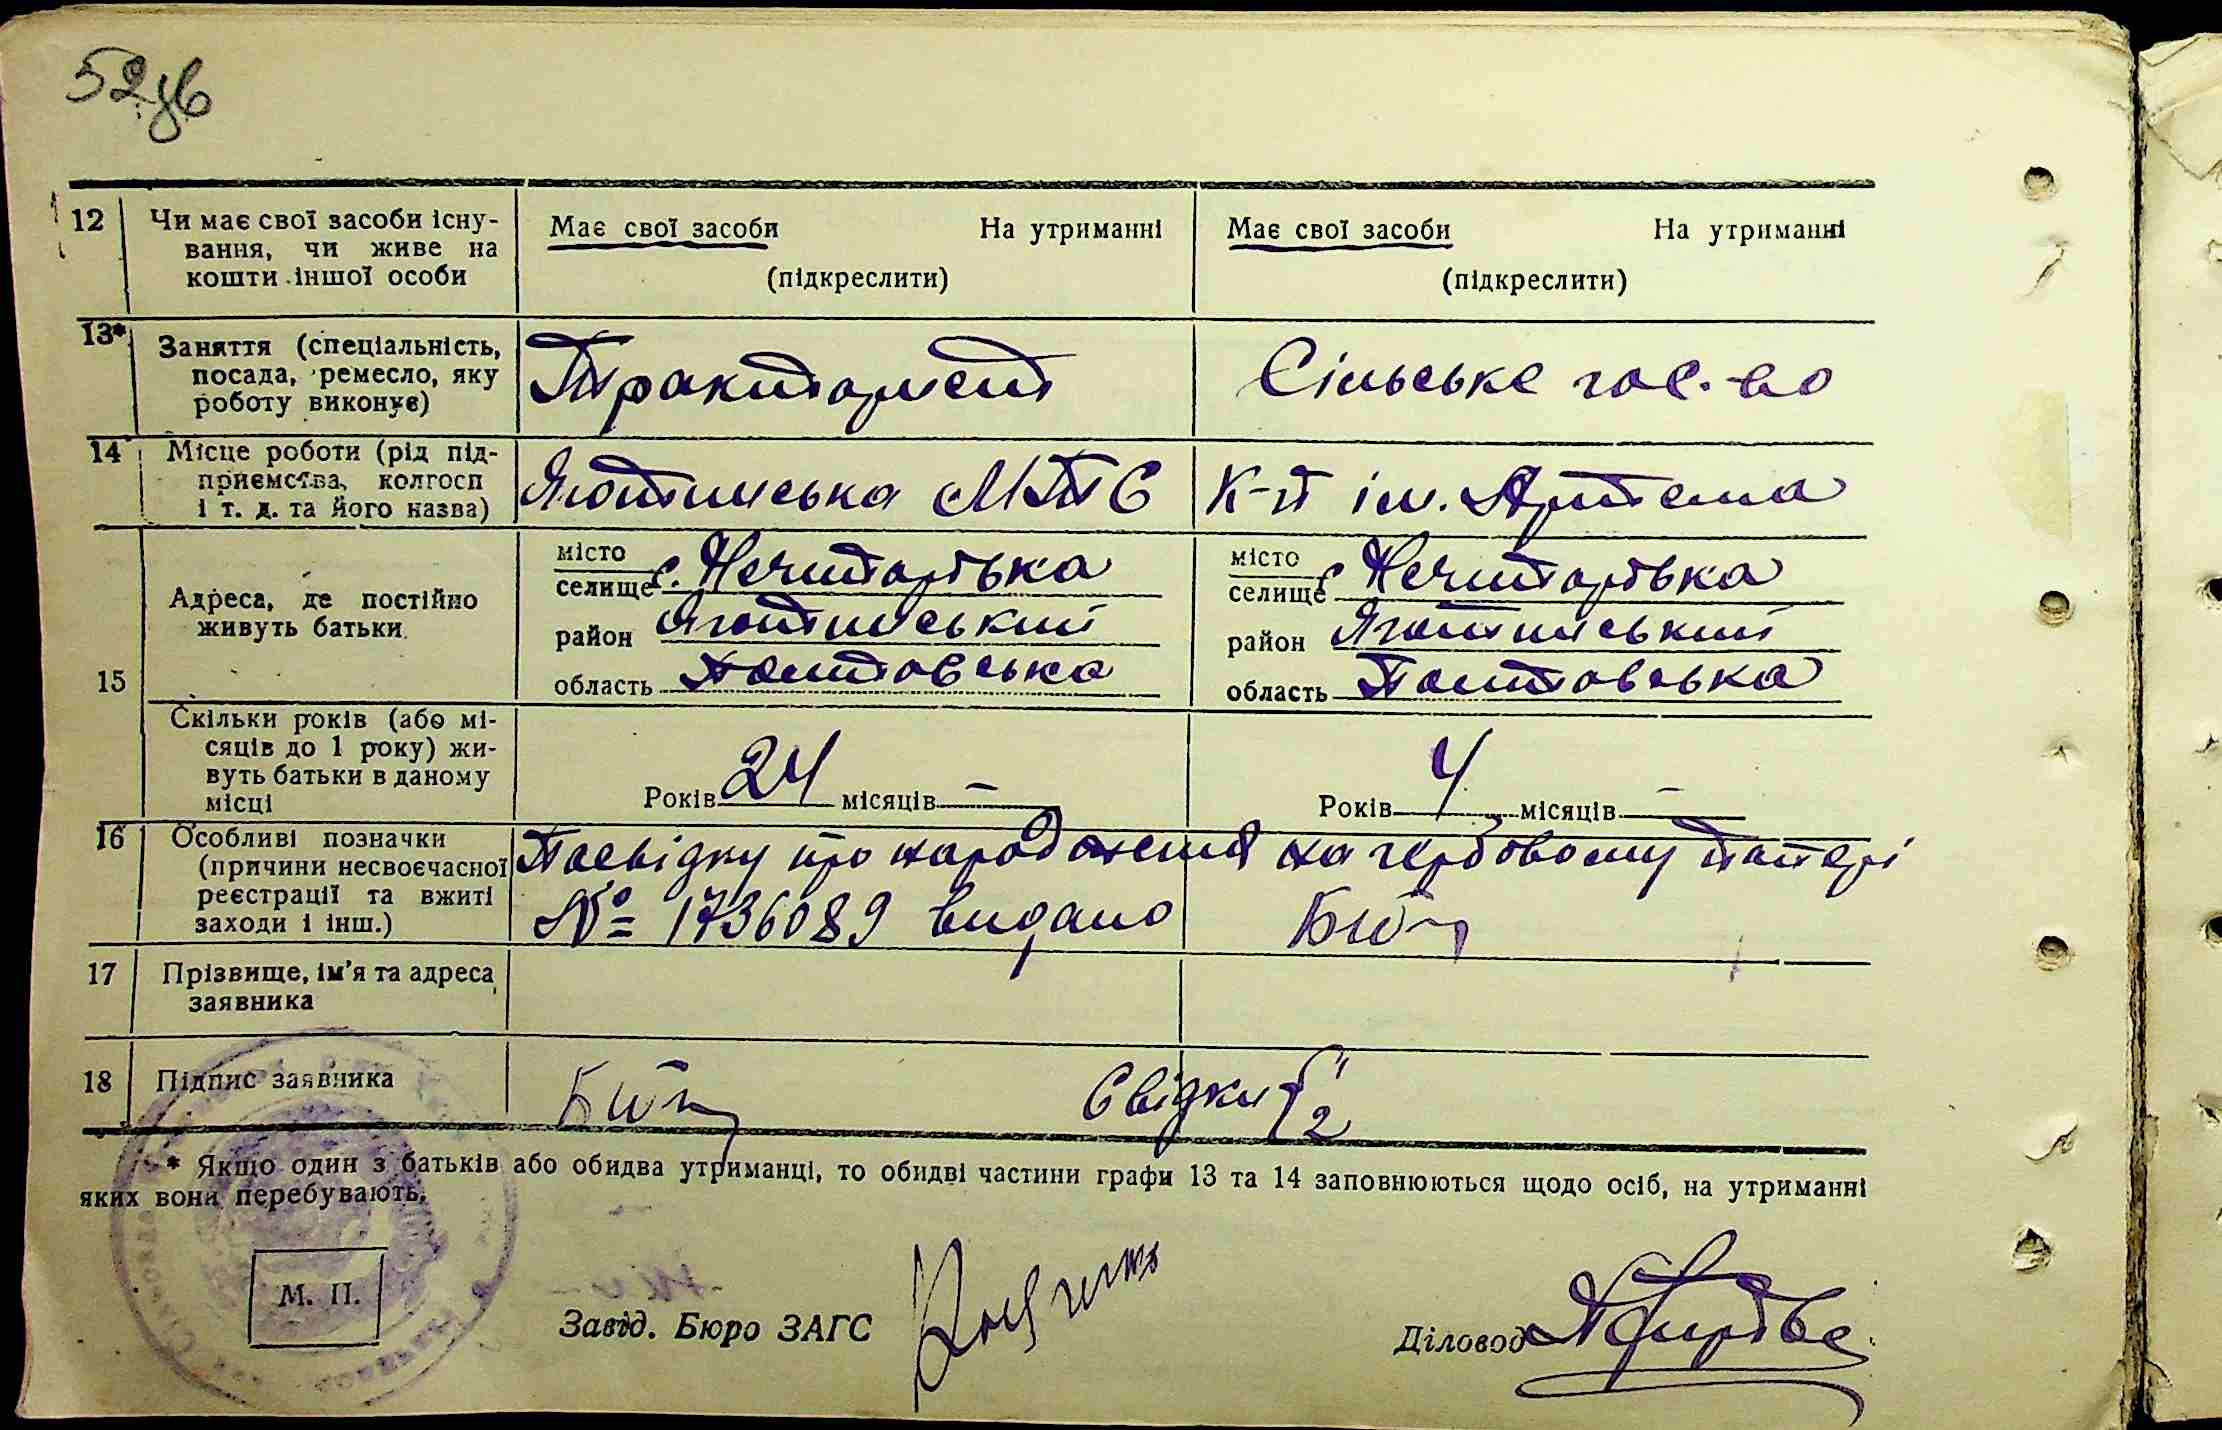 52 зв
12 Чи має свої засоби існу- Має свої засоби На утриманні Має свої засоби На утриманні
вання, чи живе на
кошти іншої особи (підкреслити) (підкреслити)
13* Заняття (спеціальність, Тракторист Сільське гос-во
посада, ремесло, яку
роботу виконує)
14 Місце роботи (рід під- Яготинська МТС К-п ім. Артема
приємства, колгосп
і т. д. та його назва)
15 Адреса, де постійно
живуть батьки
місто
селище с. Нечипорівка
район Яготинський
область Полтовська
місто
селище с Нечипорівка
район Яготинський
область Полтовська
Скільки років (або мі-
сяців до 1 року) жи-
вуть батьки в даному
місці
Років 24 місяців — Років 4 місяців —
16 Особливі позначки
(причини несвоєчасної
реєстрації та вжиті
заходи і інш.)
Посвідку про народження на гербовому папері
№ 1736089 видано
17 Прізвище, ім'я та адреса
заявника
18 Підпис заявника Свідки 1 2
* Якщо один з батьків або обидва утриманці, то обидві частини графи 13 та 14 заповнюються щодо осіб, на утриманні
яких вони перебувають.
М. П.
Завід. Бюро ЗАГС
Діловод